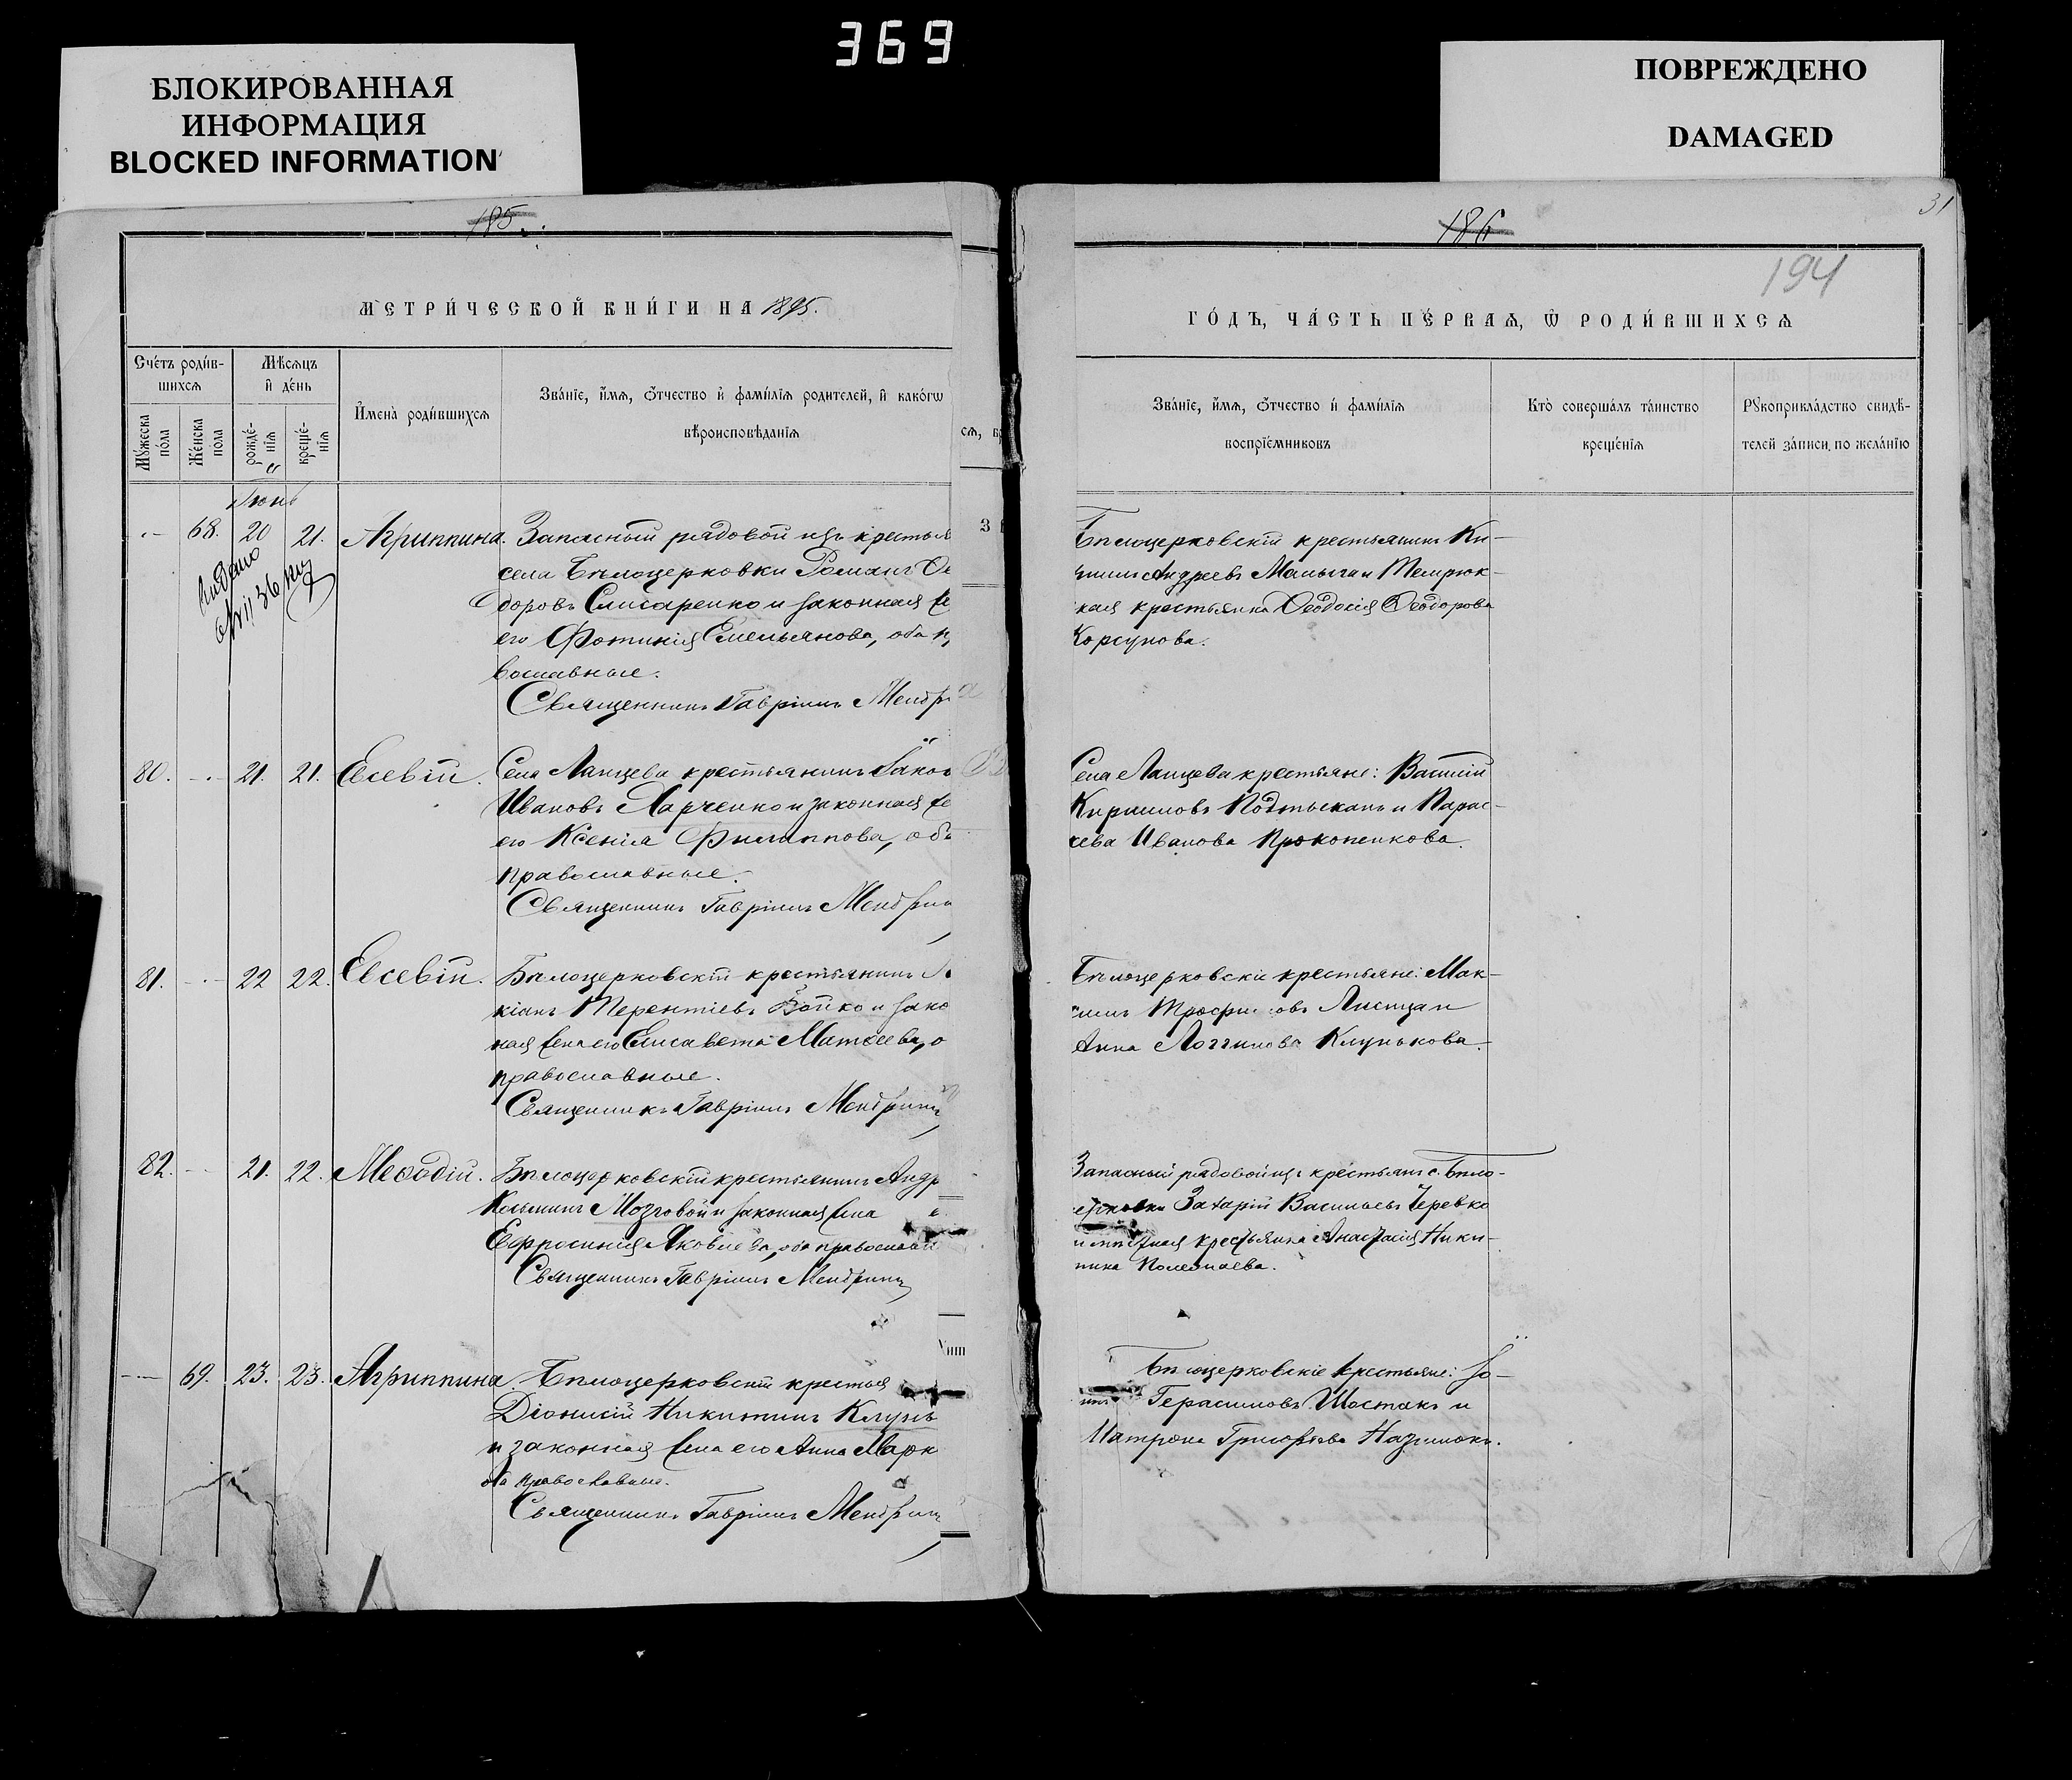 369
БЛОКИРОВАННАЯ
ИНФОРМАЦИЯ
BLOCKED INFORMATION
ПОВРЕЖДЕНО
DAMAGED
185.
МЕТРИ́ЧЕСКОЙ КНИ́ГИ НА 1895.
Сче́тъ роди́в-
шихсѧ
Мѣ́сѧцъ
и҆ де́нь
Мꙋ́жеска
по́ла
Же́нска
пола
рожде́-
нїѧ
креще́-
нїѧ
И҆мена̀ роди́вшихсѧ
Зва́нїе, и҆́мѧ, ѻ҆́тчество и҆ фамѝлїѧ родителей, и҆ како́гѡ
вѣроисповѣ́данїѧ
Іюнь
68. 20 21. Агриппина. Запасный рядовой изъ крестья
села Бѣлоцерковки Романъ Ѳе
доровъ Слисаренко и законная же
его Фотинія Емельянова, оба п
вославные.
Священникъ Гавріилъ Мендр
80. 21. 21. Евсевій. Села Ланцева крестьянинъ Іаков
Ивановъ Харченко и законная же
его Ксенія Филиппова, оба
православные.
Священникъ Гавріилъ Мендри
81. 22 22. Евсевій. Бѣлоцерковскій крестьянинъ
кіанъ Терентіевъ Бойко и зако
ная жена его Елисавета Матѳеева, о
православные.
Священникъ Гавріилъ Мендрин
82. 21. 22. Меѳодій. Бѣлоцерковскій крестьянинъ Андр
Козминъ Мозговой и законная жена
Евфросинія Яковлева, оба православн
Священникъ Гавріилъ Мендрин
69. 23. 23. Агриппина. Бѣлоцерковскій крестья
Діонисій Никитинъ Клунь
и законная жена его Анна Марк
оба православные.
Священникъ Гавріилъ Мендрин
186
31
194
ГО́ДЪ, ЧА́СТЬ ПЕ́РВАѦ, Ѽ РОДИ́ВШИХСѦ
Зва́нїе, и҆́мѧ, ѻ҆́тчество и҆ фамѝлїѧ
воспрїе́мниковъ
Кто̀ соверша́лъ та́инство
креще́нїѧ
Рꙋкоприкла́дство свидѣ́-
телей за́писи, по жела́нїю
Бѣлоцерковскій крестьянинъ Ки-
Андреевъ Малыга и Темрюк-
кая крестьянка Ѳеодосія Ѳеодорова
Корсунова.
Села Ланцева крестьяне: Василій
Кирилловъ Подтыканъ и Парас-
кева Иванова Прокопенкова.
Бѣлоцерковскіе крестьяне: Мак-
симъ Трофимовъ Лисица и
Анна Логгинова Клунькова.
Запасный рядовой изъ крестьянъ с. Бѣло-
церковки Захарій Васильевъ Черевко
и мѣстная крестьянка Анастасія Ники-
Бѣлоцерковскіе крестьяне: Іо-
Герасимовъ Шостакъ и
Матрона Григорьева